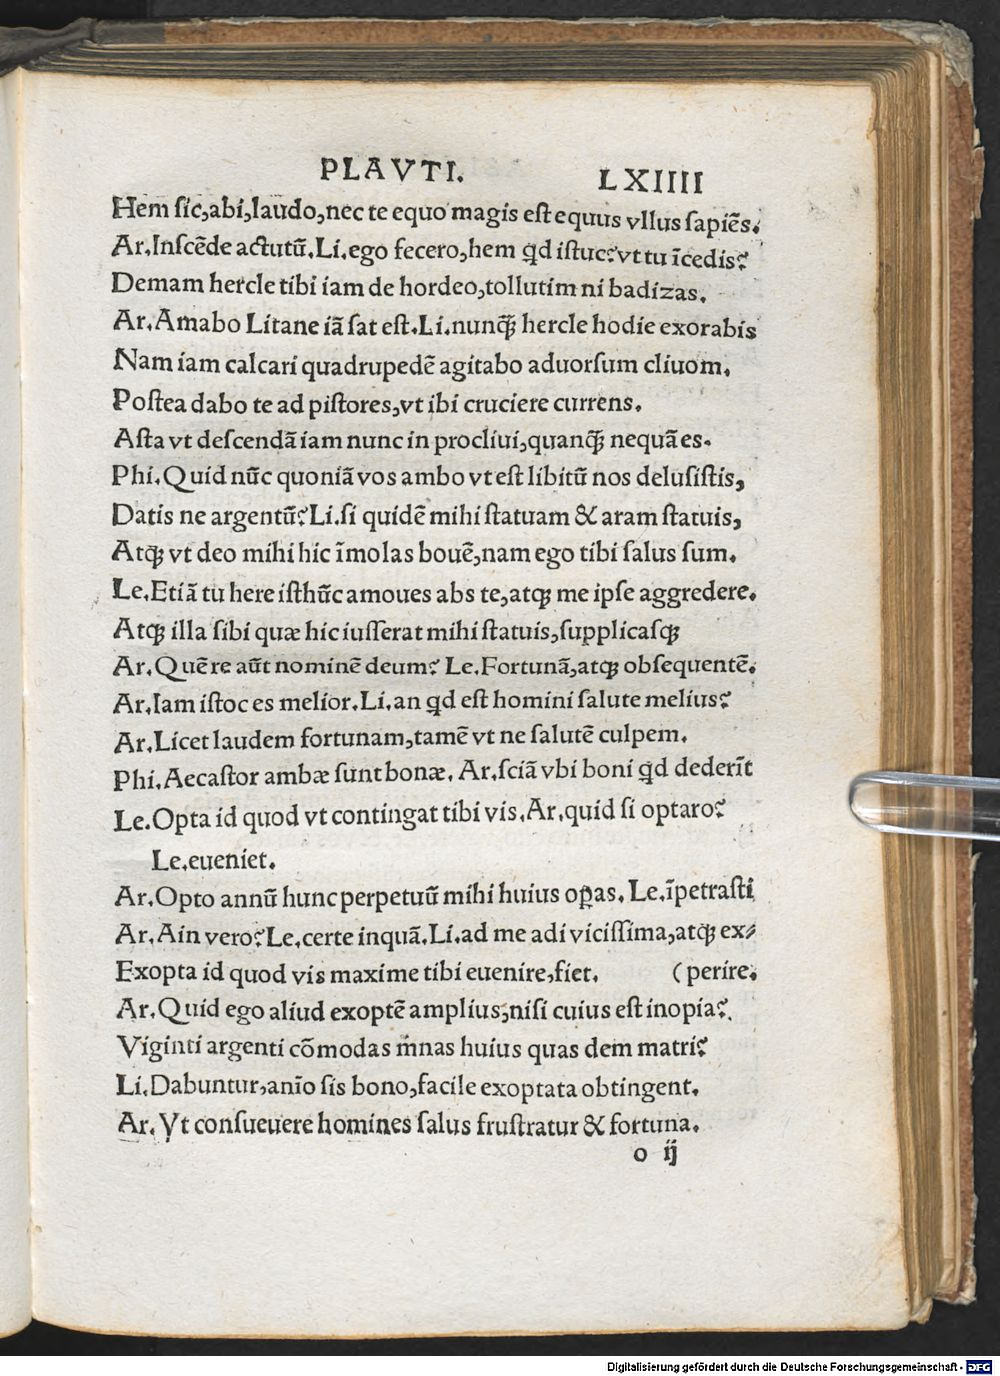 PLAVTI. LXIIII
Hem ſic,abi,laudo,nec te equo magis eſt equus vllus ſapiēs.
Ar.Inſcēde actutū.Li.ego fecero,hem ꝗd iſtuc?vt tu īcedis?
Demam hercle tibi iam de hordeo,tollutim ni badizas.
Ar.Amabo Litane iā ſat eſt.Li.nunꝙ̄ hercle hodie exorabis
Nam iam calcari quadrupedē agitabo aduorſum cliuom.
Poſtea dabo te ad piſtores,vt ibi cruciere currens.
Aſta vt deſcendā iam nunc in procliui,quanꝙ̄ nequā es.
Phi.Quid nūc quoniā vos ambo vt eſt libitū nos deluſiſtis,
Datis ne argentū?Li.ſi quidē mihi ſtatuam & aram ſtatuis,
Atqꝫ vt deo mihi hic īmolas bouē,nam ego tibi ſalus ſum.
Le.Etiā tu here iſthūc amoues abs te,atqꝫ me ipſe aggredere.
Atqꝫ illa ſibi quæ hic iuſſerat mihi ſtatuis,ſupplicaſqꝫ
Ar.Quē re aūt nominē deum? Le.Fortunā,atqꝫ obſequentē.
Ar.Iam iſtoc es melior.Li.an ꝗd eſt homini ſalute melius?
Ar.Licet laudem fortunam,tamē vt ne ſalutē culpem.
Phi.Aecaſtor ambæ ſunt bonæ. Ar.ſciā vbi boni ꝗd dederīt
Le.Opta id quod vt contingat tibi vis.Ar.quid ſi optaro?
Le.eueniet.
Ar.Opto annū hunc perpetuū mihi huius oꝑas. Le.īpetraſti
Ar.Ain vero?Le.certe inquā.Li.ad me adi viciſſima,atqꝫ ex⸗
Exopta id quod vis maxime tibi euenire,fiet. (perire.
Ar.Quid ego aliud exoptē amplius,niſi cuius eſt inopia?.
Viginti argenti cōmodas m̄nas huius quas dem matri?
Li.Dabuntur,anīo ſis bono,facile exoptata obtingent.
Ar.Vt conſueuere homines ſalus fruſtratur & fortuna.
o ij
Digitalisierung gefördert durch die Deutsche Forschungsgemeinschaft - DFG